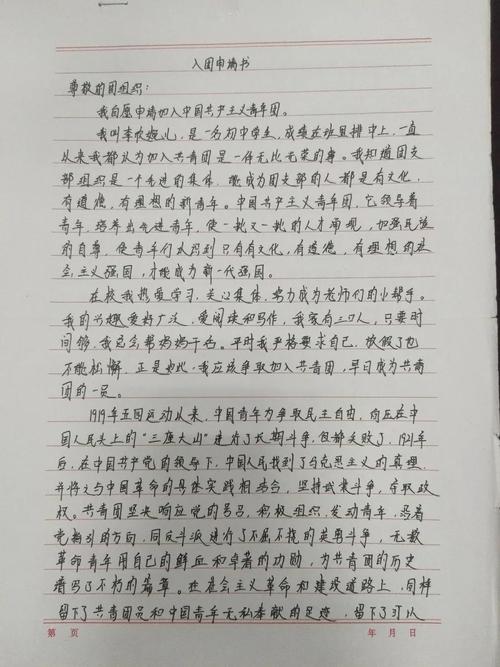 入团申请书
尊敬的团组织:
我自愿申请加入中国共产主义青年团。
我叫李 是一名初中学生,成绩在班里排中上,一直
从来我都认为加入共青团是一件无比光荣的事。我知道团支
部组织是一个先进的集体,能成为团支部的人都是有文化,
有道德,有理想的新青年。中国共产主义青年团,它领导着
青年,培养出先进青年,使一批又一批的人才涌现,加强民族
的自尊,使青年们认识到只有有文化,有道德,有理想的社
会主义强国,才能成为新一代强国。
在校我热爱学习,关心集体,努力成为老师们的小帮手。
我的兴趣爱好广泛,爱阅读和写作,我家有三口人,只要时
间够,我总会帮妈妈干活。平时我严格要求自己,放假了也
不能松懈。正是如此,我应该争取加入共青团,早日成为共青
团的一员。
1919年五四运动从来,中国青年为争取民主自由,向压在中
国人民头上的“三座大山”进行了长期斗争,但都失败了,1921年
后,在中国共产党的领导下,中国人民找到了马克思主义的真理,
并将之与中国革命的具体实践相结合,坚持武装斗争,夺取政
权。共青团坚决响应党的号召,积极组织、发动青年,沿着
党指引的方向,同反动派进行了不屈不挠的英勇斗争,无数
革命青年用自己的鲜血和卓著的功勋,为共青团的历史
谱写了不朽的篇章。在社会主义革命和建设道路上,同样
留下了共青团员和中国青年无私奉献的足迹,留下了可以
第 页 年 月 日